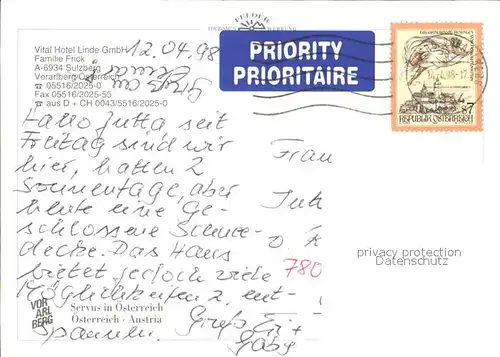 FELDER
Vital Hotel Linde GmbH
Familie Frick
A-6934 Sulzberg
Vorarlberg/Österreich
☎ 05516/2025-0
Fax 05516/2025-55
☎ aus D + CH 0043/5516/2025-0
12.04.98
PRIORITY
PRIORITAIRE
14.4.98-17
S7
REPUBLIK ÖSTERREICH
Hallo Jutta seit
Freitag sind wir
hier, hatten 2
Sonnentage, aber
heute eine Ge-
schlossene Schnee-
decke. Das Haus
bietet jedoch viele
Möglichkeiten z. ent-
spannen.
Gruß
Gaby
Frau
Jutt
780
privacy protection
Datenschutz
VOR
ARL
BERG
Servus in Österreich
Österreich · Austria